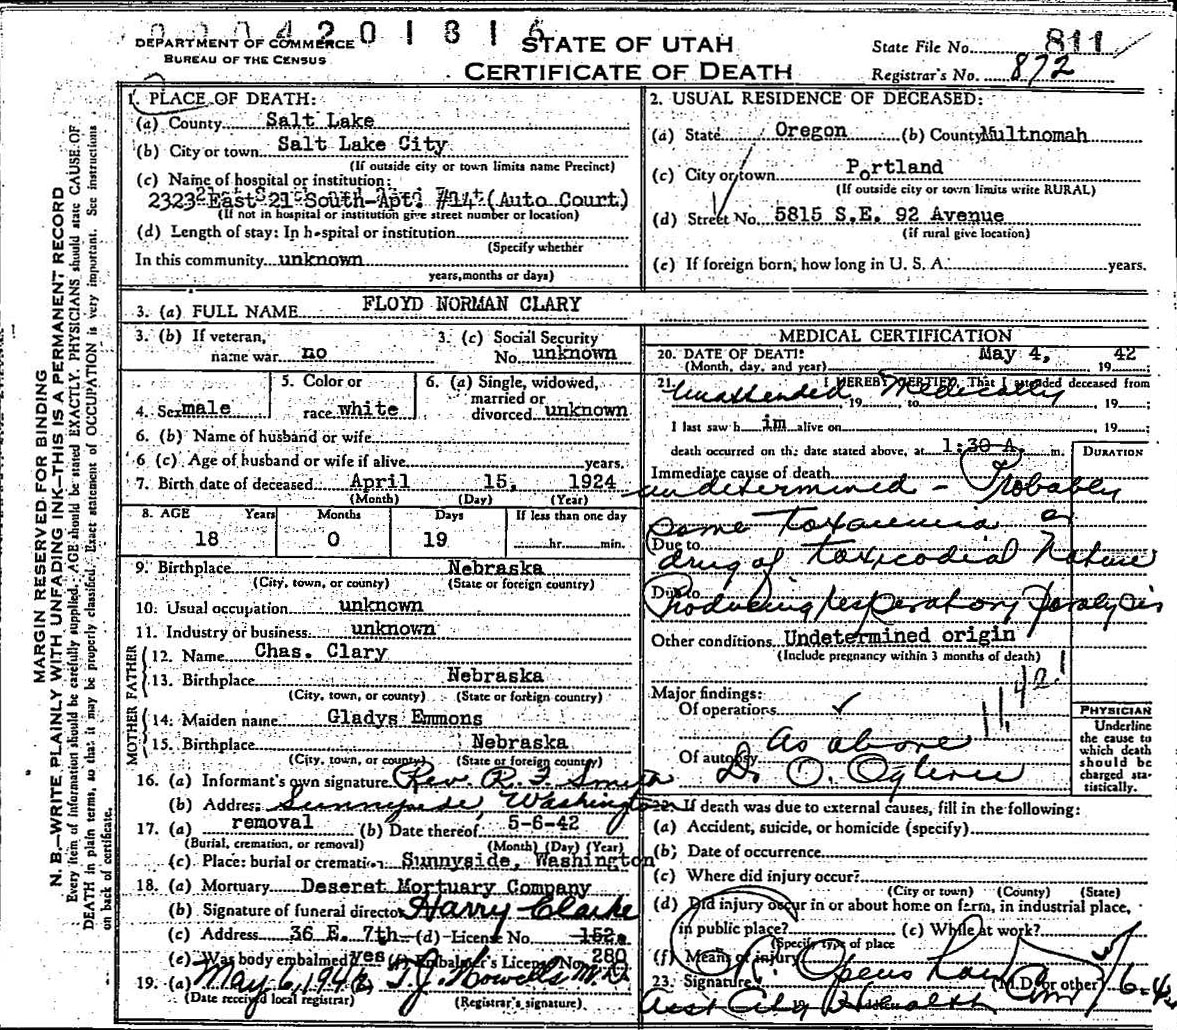 0004201816
DEPARTMENT OF COMMERCE
BUREAU OF THE CENSUS
STATE OF UTAH
CERTIFICATE OF DEATH
State File No. 811
Registrar's No. 872
MARGIN RESERVED FOR BINDING
N. B.—WRITE PLAINLY WITH UNFADING INK—THIS IS A PERMANENT RECORD
Every item of information should be carefully supplied. AGE should be stated EXACTLY. PHYSICIANS should state CAUSE OF
DEATH in plain terms, so that it may be properly classified. Exact statement of OCCUPATION is very important. See instructions
on back of certificate.
1. PLACE OF DEATH:
(a) County Salt Lake
(b) City or town Salt Lake City
(If outside city or town limits name Precinct)
(c) Name of hospital or institution:
2323 East 21 South-Apt. #14 (Auto Court)
(If not in hospital or institution give street number or location)
(d) Length of stay: In hospital or institution
(Specify whether
In this community unknown
years, months or days)
2. USUAL RESIDENCE OF DECEASED:
(a) State Oregon (b) County Multnomah
(c) City or town Portland
(If outside city or town limits write RURAL)
(d) Street No. 5815 S.E. 92 Avenue
(If rural give location)
(e) If foreign born, how long in U. S. A. years.
3. (a) FULL NAME FLOYD NORMAN CLARY
3. (b) If veteran, name war no
3. (c) Social Security No. unknown
4. Sex male
5. Color or race white
6. (a) Single, widowed, married or divorced unknown
6. (b) Name of husband or wife
6 (c) Age of husband or wife if alive years.
7. Birth date of deceased April 15, 1924
(Month) (Day) (Year)
8. AGE Years Months Days If less than one day
18 0 19 hr. min.
9. Birthplace Nebraska
(City, town, or county) (State or foreign country)
10. Usual occupation unknown
11. Industry or business unknown
FATHER
12. Name Chas. Clary
13. Birthplace Nebraska
(City, town, or county) (State or foreign country)
MOTHER
14. Maiden name Gladys Emmons
15. Birthplace Nebraska
(City, town, or county) (State or foreign country)
16. (a) Informant's own signature Rev. R. F. Smith
(b) Address Sunnyside, Washington
17. (a) removal (b) Date thereof 5-6-42
(Burial, cremation, or removal) (Month) (Day) (Year)
(c) Place: burial or cremation Sunnyside, Washington
18. (a) Mortuary Deseret Mortuary Company
(b) Signature of funeral director Harry Clarke
(c) Address 36 E. 7th (d) License No. 152
(e) Was body embalmed yes (f) Embalmer's License No. 280
19. (a) May 6, 1942 T. J. Howells M.D.
(Date received local registrar) (Registrar's signature)
MEDICAL CERTIFICATION
20. DATE OF DEATH: May 4, 1942
(Month, day, and year)
21. I HEREBY CERTIFY, That I attended deceased from
Unattended, 19 , to Medically , 19 ;
I last saw h im alive on , 19 ;
death occurred on the date stated above, at 1:30 A. m.
DURATION
Immediate cause of death
undetermined - Probably
some toxaemia or
Due to
drug of toxicodial nature
Due to
Producing respiratory paralysis
Other conditions Undetermined origin
(Include pregnancy within 3 months of death)
Major findings:
Of operations ✓
Of autopsy As above
Dr. O. Ogilvie
PHYSICIAN
Underline the cause to which death should be charged statistically.
22. If death was due to external causes, fill in the following:
(a) Accident, suicide, or homicide (specify)
(b) Date of occurrence
(c) Where did injury occur?
(City or town) (County) (State)
(d) Did injury occur in or about home on farm, in industrial place,
in public place? (e) While at work?
(Specify type of place
(f) Means of injury
23. Signature (M.D. or other)
City Health